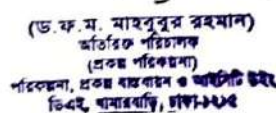 (ড.ক.ম. মাহবুবুর রহমান)
অতিরিক্ত পরিচালক
(প্রকল্প পরিকল্পনা)
পরিকল্পনা, প্রকল্প বাস্তবায়ন ও আইসিটি উইং
ডিএই, খামারবাড়ি, ঢাকা-১২১৫